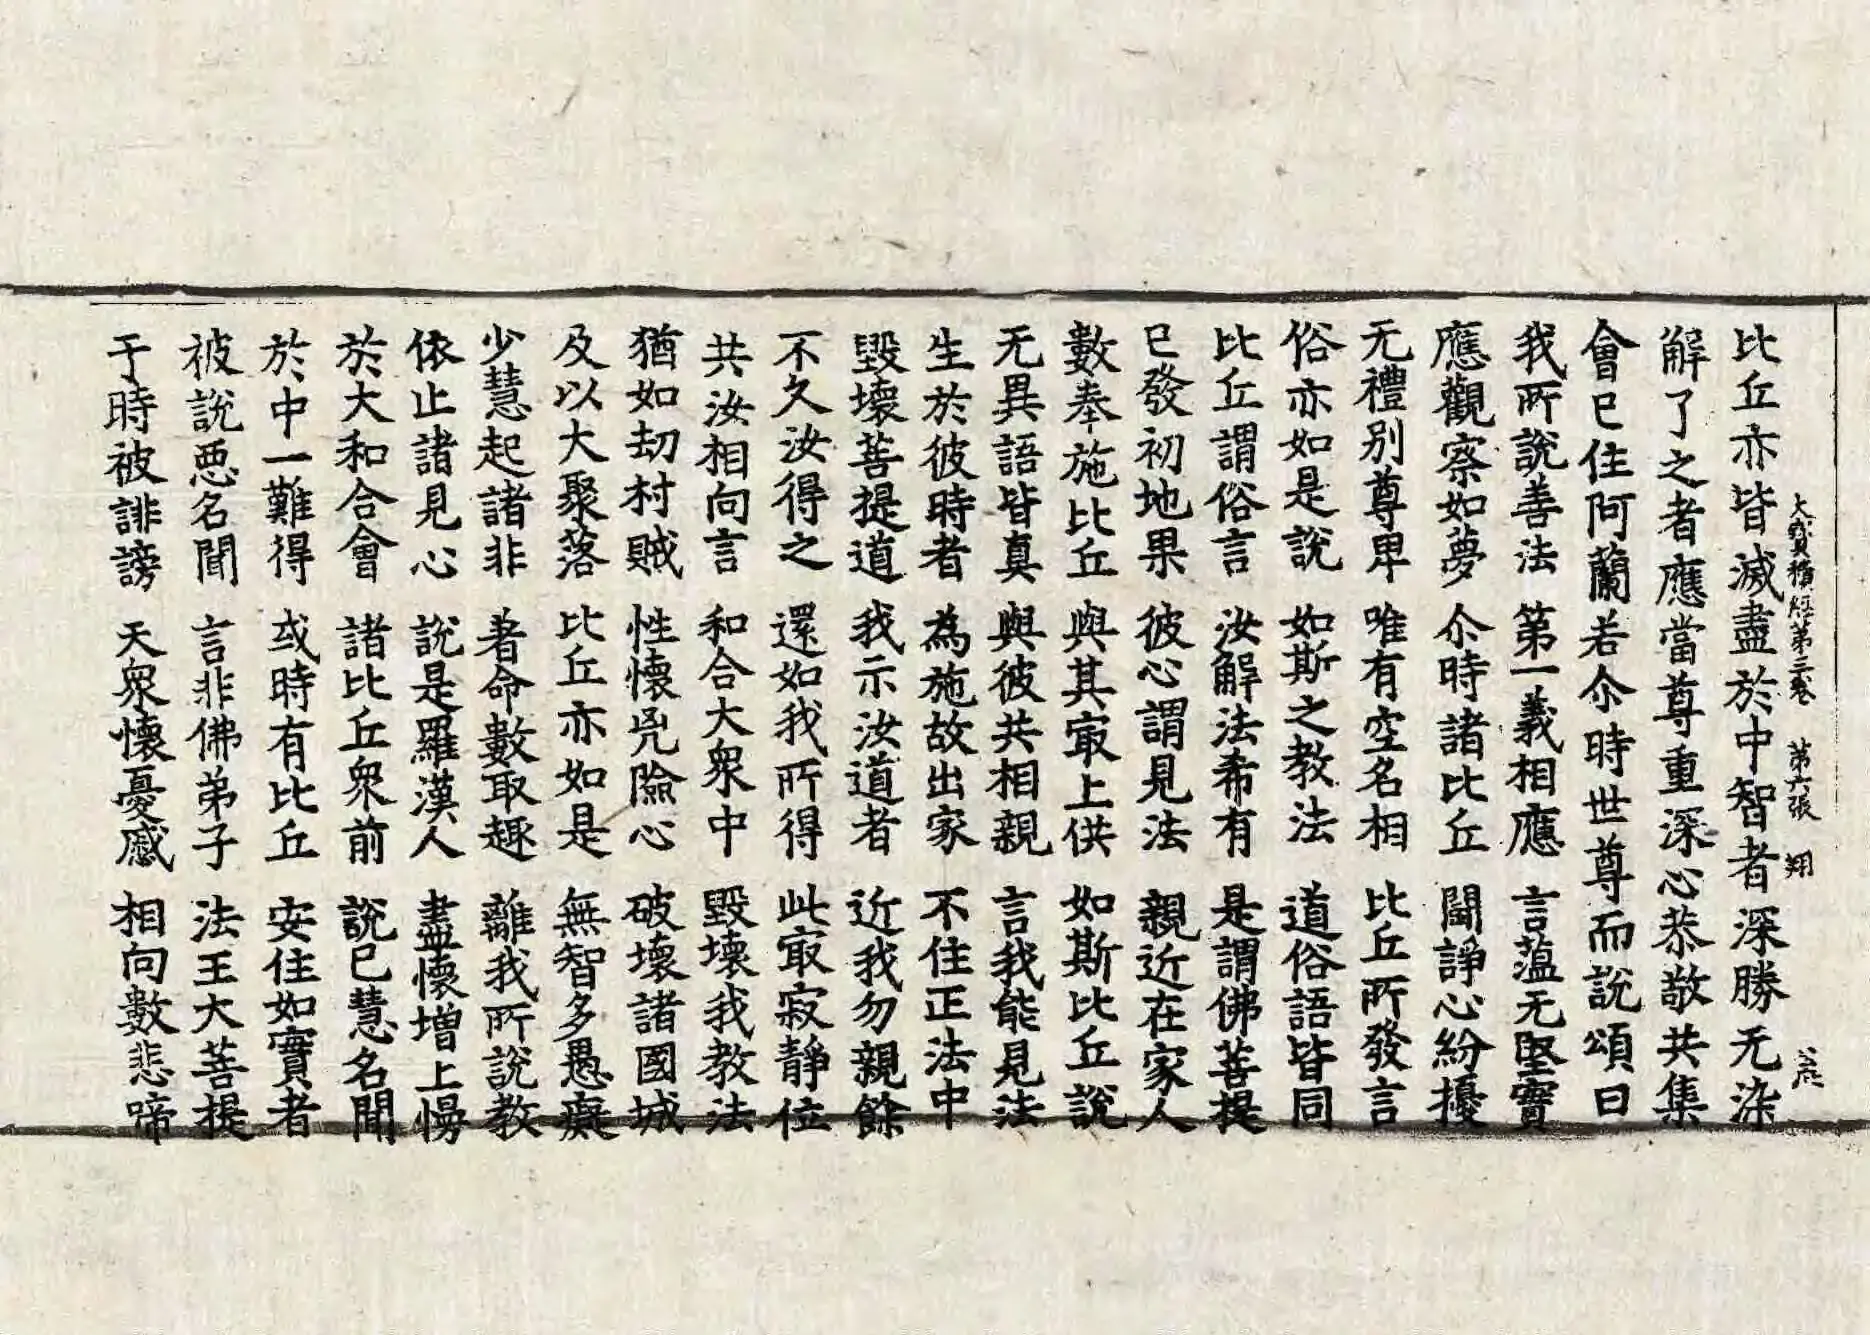 大寶積經第三卷 第六張 翔
比丘亦皆滅盡於中智者深勝无染
解了之者應當尊重深心恭敬共集
會已住阿蘭若尒時世尊而說頌曰
我所說善法 第一義相應 言蕰无堅實
應觀察如夢 尒時諸比丘 鬪諍心紛擾
无禮別尊卑 唯有空名相 比丘所發言
俗亦如是說 如斯之教法 道俗語皆同
比丘謂俗言 汝解法希有 是謂佛菩提
已發初地果 彼心謂見法 親近在家人
數奉施比丘 與其㝡上供 如斯比丘說
无異語皆真 與彼共相親 言我能見法
生於彼時者 為施故出家 不住正法中
毀壞菩提道 我示汝道者 近我勿親餘
不久汝得之 還如我所得 此㝡寂靜位
共汝相向言 和合大衆中 毀壞我教法
猶如劫村賊 性懷兇險心 破壞諸國城
及以大聚落 比丘亦如是 無智多愚癡
少慧起諸非 著命數取趣 離我所說教
依止諸見心 說是羅漢人 盡懷增上慢
於大和合會 諸比丘衆前 說已慧名聞
於中一難得 或時有比丘 安住如實者
被說惡名聞 言非佛弟子 法王大菩提
于時被誹謗 天衆懷憂慼 相向數悲啼